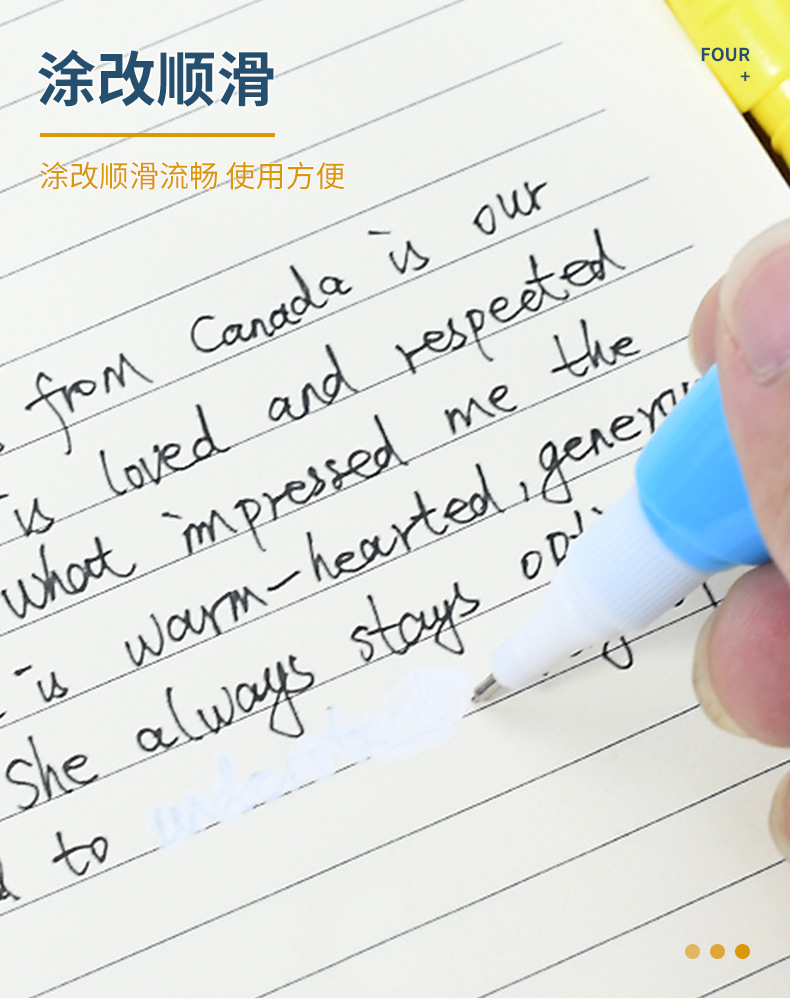 涂改顺滑
FOUR
+
涂改顺滑流畅 使用方便
from Canada is our
is loved and respected
what impressed me the
is warm-hearted, gener
She always stays
to